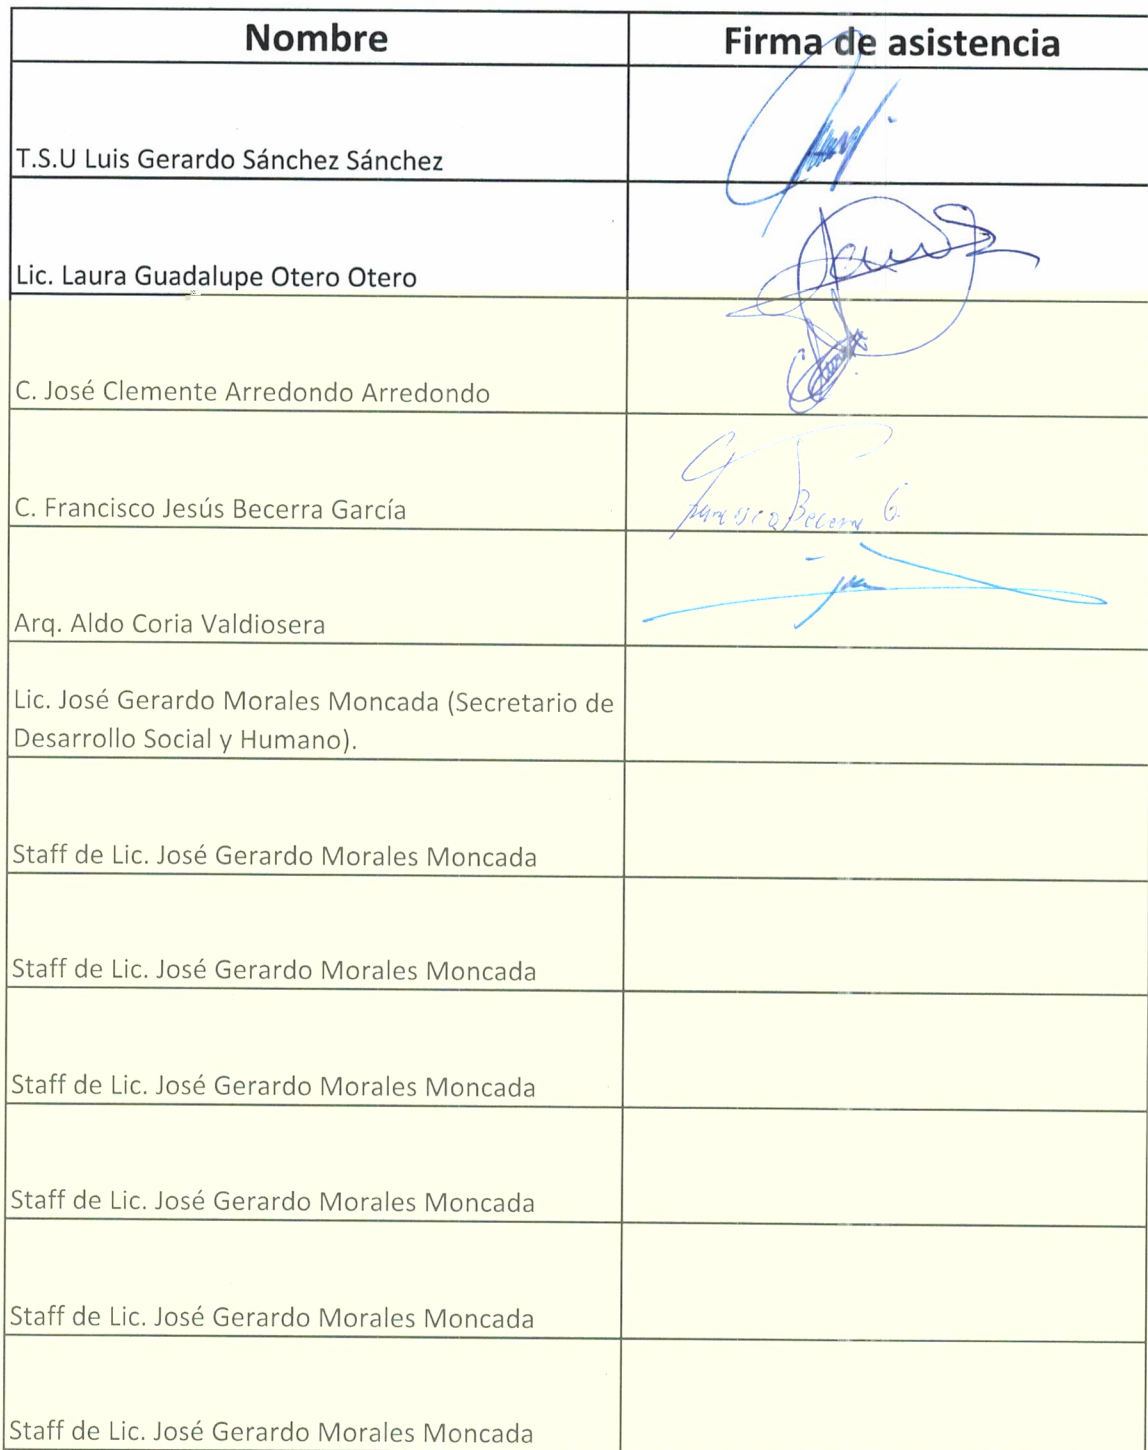 Nombre Firma de asistencia
T.S.U Luis Gerardo Sánchez Sánchez
Lic. Laura Guadalupe Otero Otero
C. José Clemente Arredondo Arredondo
C. Francisco Jesús Becerra García
Francisco Becerra G.
Arq. Aldo Coria Valdiosera
Lic. José Gerardo Morales Moncada (Secretario de
Desarrollo Social y Humano).
Staff de Lic. José Gerardo Morales Moncada
Staff de Lic. José Gerardo Morales Moncada
Staff de Lic. José Gerardo Morales Moncada
Staff de Lic. José Gerardo Morales Moncada
Staff de Lic. José Gerardo Morales Moncada
Staff de Lic. José Gerardo Morales Moncada